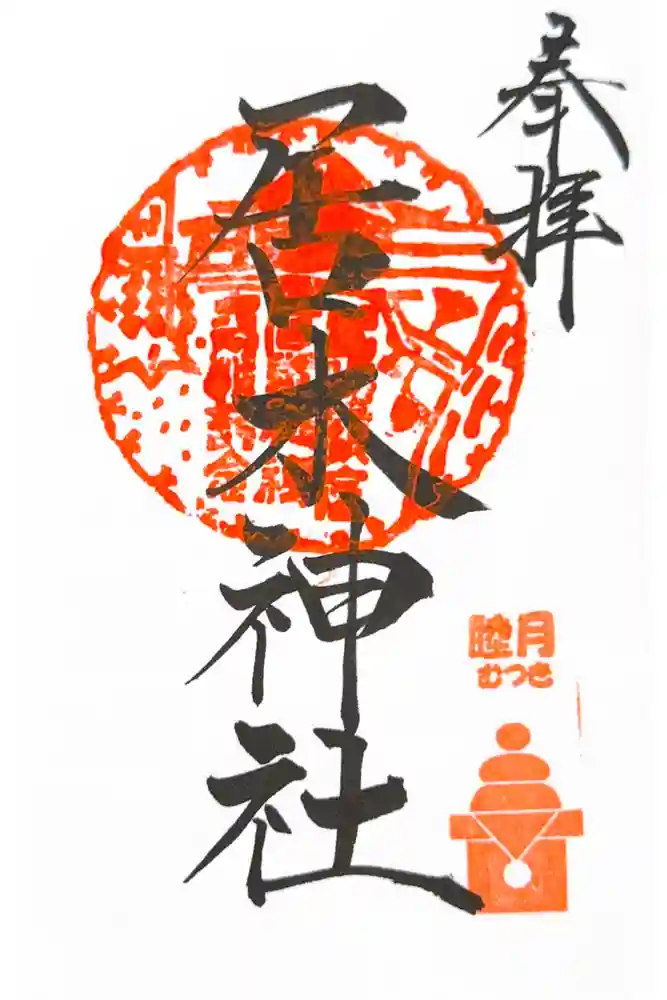 奉拝
居木神社
睦月
むつき